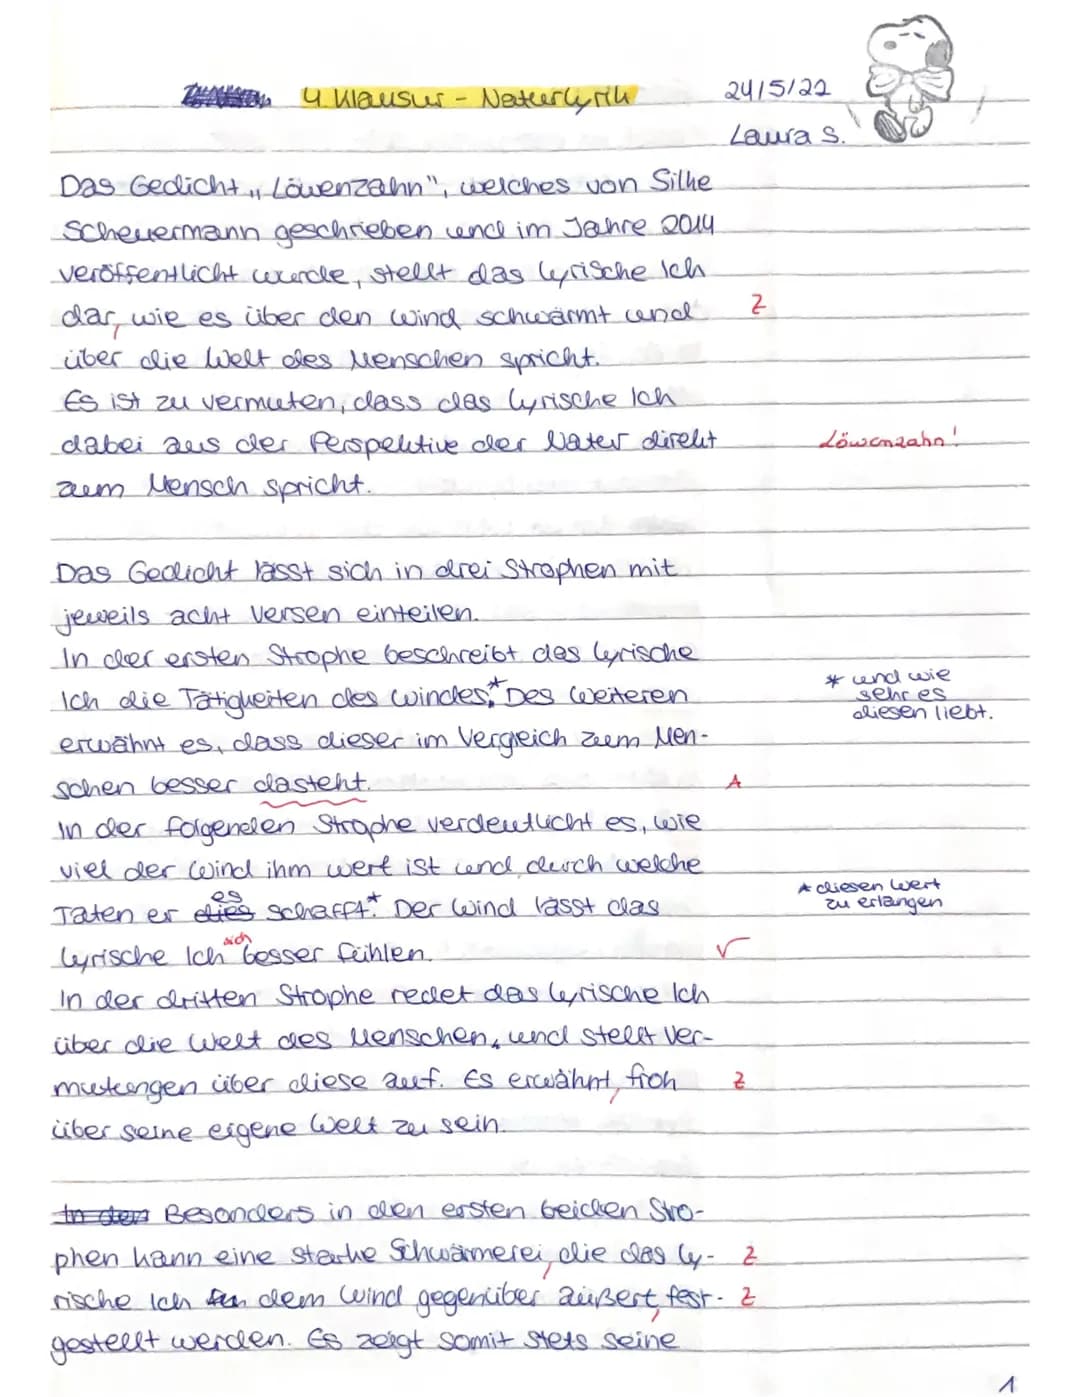 4. Klausur - Naturlyrik
24/5/22
Laura S.
Das Gedicht „Löwenzahn", welches von Silke
Scheuermann geschrieben und im Jahre 2014
veröffentlicht wurde, stellt das lyrische Ich
dar, wie es über den Wind schwärmt und Z
über die Welt des Menschen spricht.
Es ist zu vermuten, dass das lyrische Ich
dabei aus der Perspektive der Natur direkt Löwenzahn!
zum Mensch spricht.
Das Gedicht lässt sich in drei Strophen mit
jeweils acht Versen einteilen.
In der ersten Strophe beschreibt das lyrische
Ich die Tätigkeiten des Windes.* Des Weiteren
* und wie
sehr es
diesen liebt.
erwähnt es, dass dieser im Vergleich zum Men-
schen besser dasteht. A
In der folgenden Strophe verdeutlicht es, wie
viel der Wind ihm wert ist und durch welche
Taten er dies es schafft.* Der Wind lässt das
* diesen Wert
zu erlangen
lyrische Ich sich besser fühlen. √
In der dritten Strophe redet das lyrische Ich
über die Welt des Menschen, und stellt Ver-
mutungen über diese auf. Es erwähnt, froh Z
über seine eigene Welt zu sein.
In den Besonders in den ersten beiden Stro-
phen kann eine starke Schwärmerei, die das ly- Z
rische Ich dem Wind gegenüber äußert, fest- Z
gestellt werden. Es zeigt somit stets seine
1